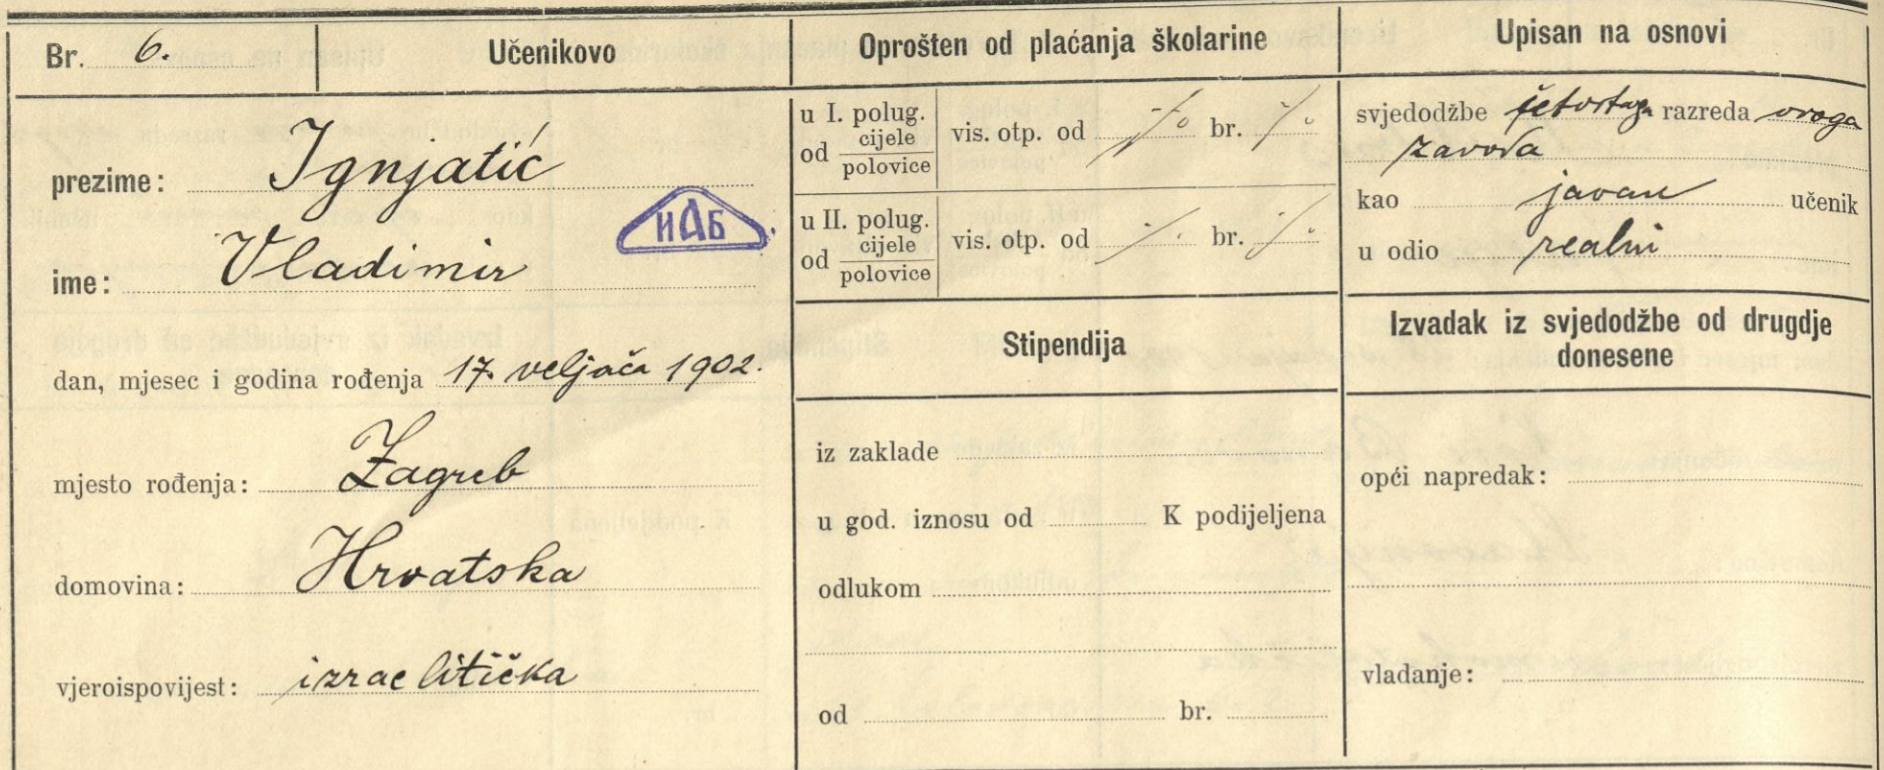 Br. 6.
Učenikovo
prezime: Ignjatić
ime: Vladimir
ИАБ
dan, mjesec i godina rođenja 17. veljača 1902.
mjesto rođenja: Zagreb
domovina: Hrvatska
vjeroispovijest: izraelitička
Oprošten od plaćanja školarine
u I. polug.
od cijele
polovice
vis. otp. od ./. br. ./.
u II. polug.
od cijele
polovice
vis. otp. od ./. br. ./.
Stipendija
iz zaklade
u god. iznosu od K podijeljena
odlukom
od br.
Upisan na osnovi
svjedodžbe razreda ovoga
zavoda
kao javan učenik
u odio realni
Izvadak iz svjedodžbe od drugdje
donesene
opći napredak:
vladanje: